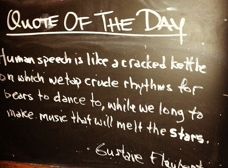 QUOTE OF THE DAY
Human speech is like a cracked kettle
on which we tap crude rhythms for
bears to dance to, while we long to
make music that will melt the stars.
- Gustave Flaubert